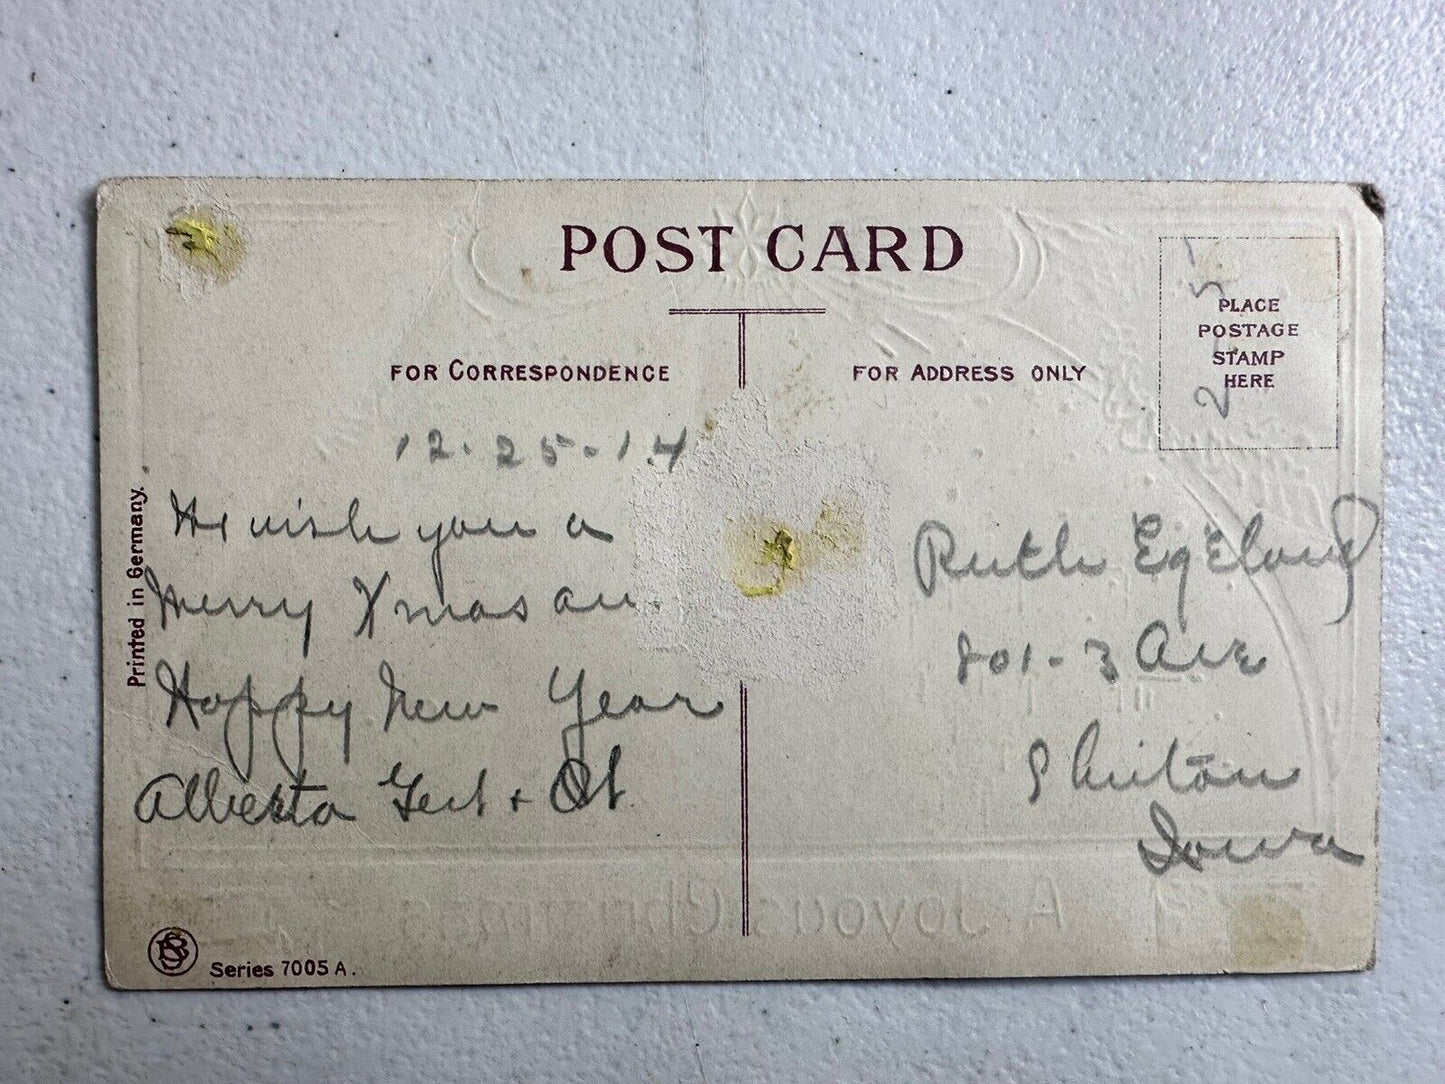 POST CARD
FOR CORRESPONDENCE
FOR ADDRESS ONLY
PLACE
POSTAGE
STAMP
HERE
2 5
12-25-14
wish you a
Merry Xmas an
Happy New Year
Alberta +
Ruth
801-3 Ave
Iowa
Printed in Germany.
Series 7005 A.
A Joyous Christmas